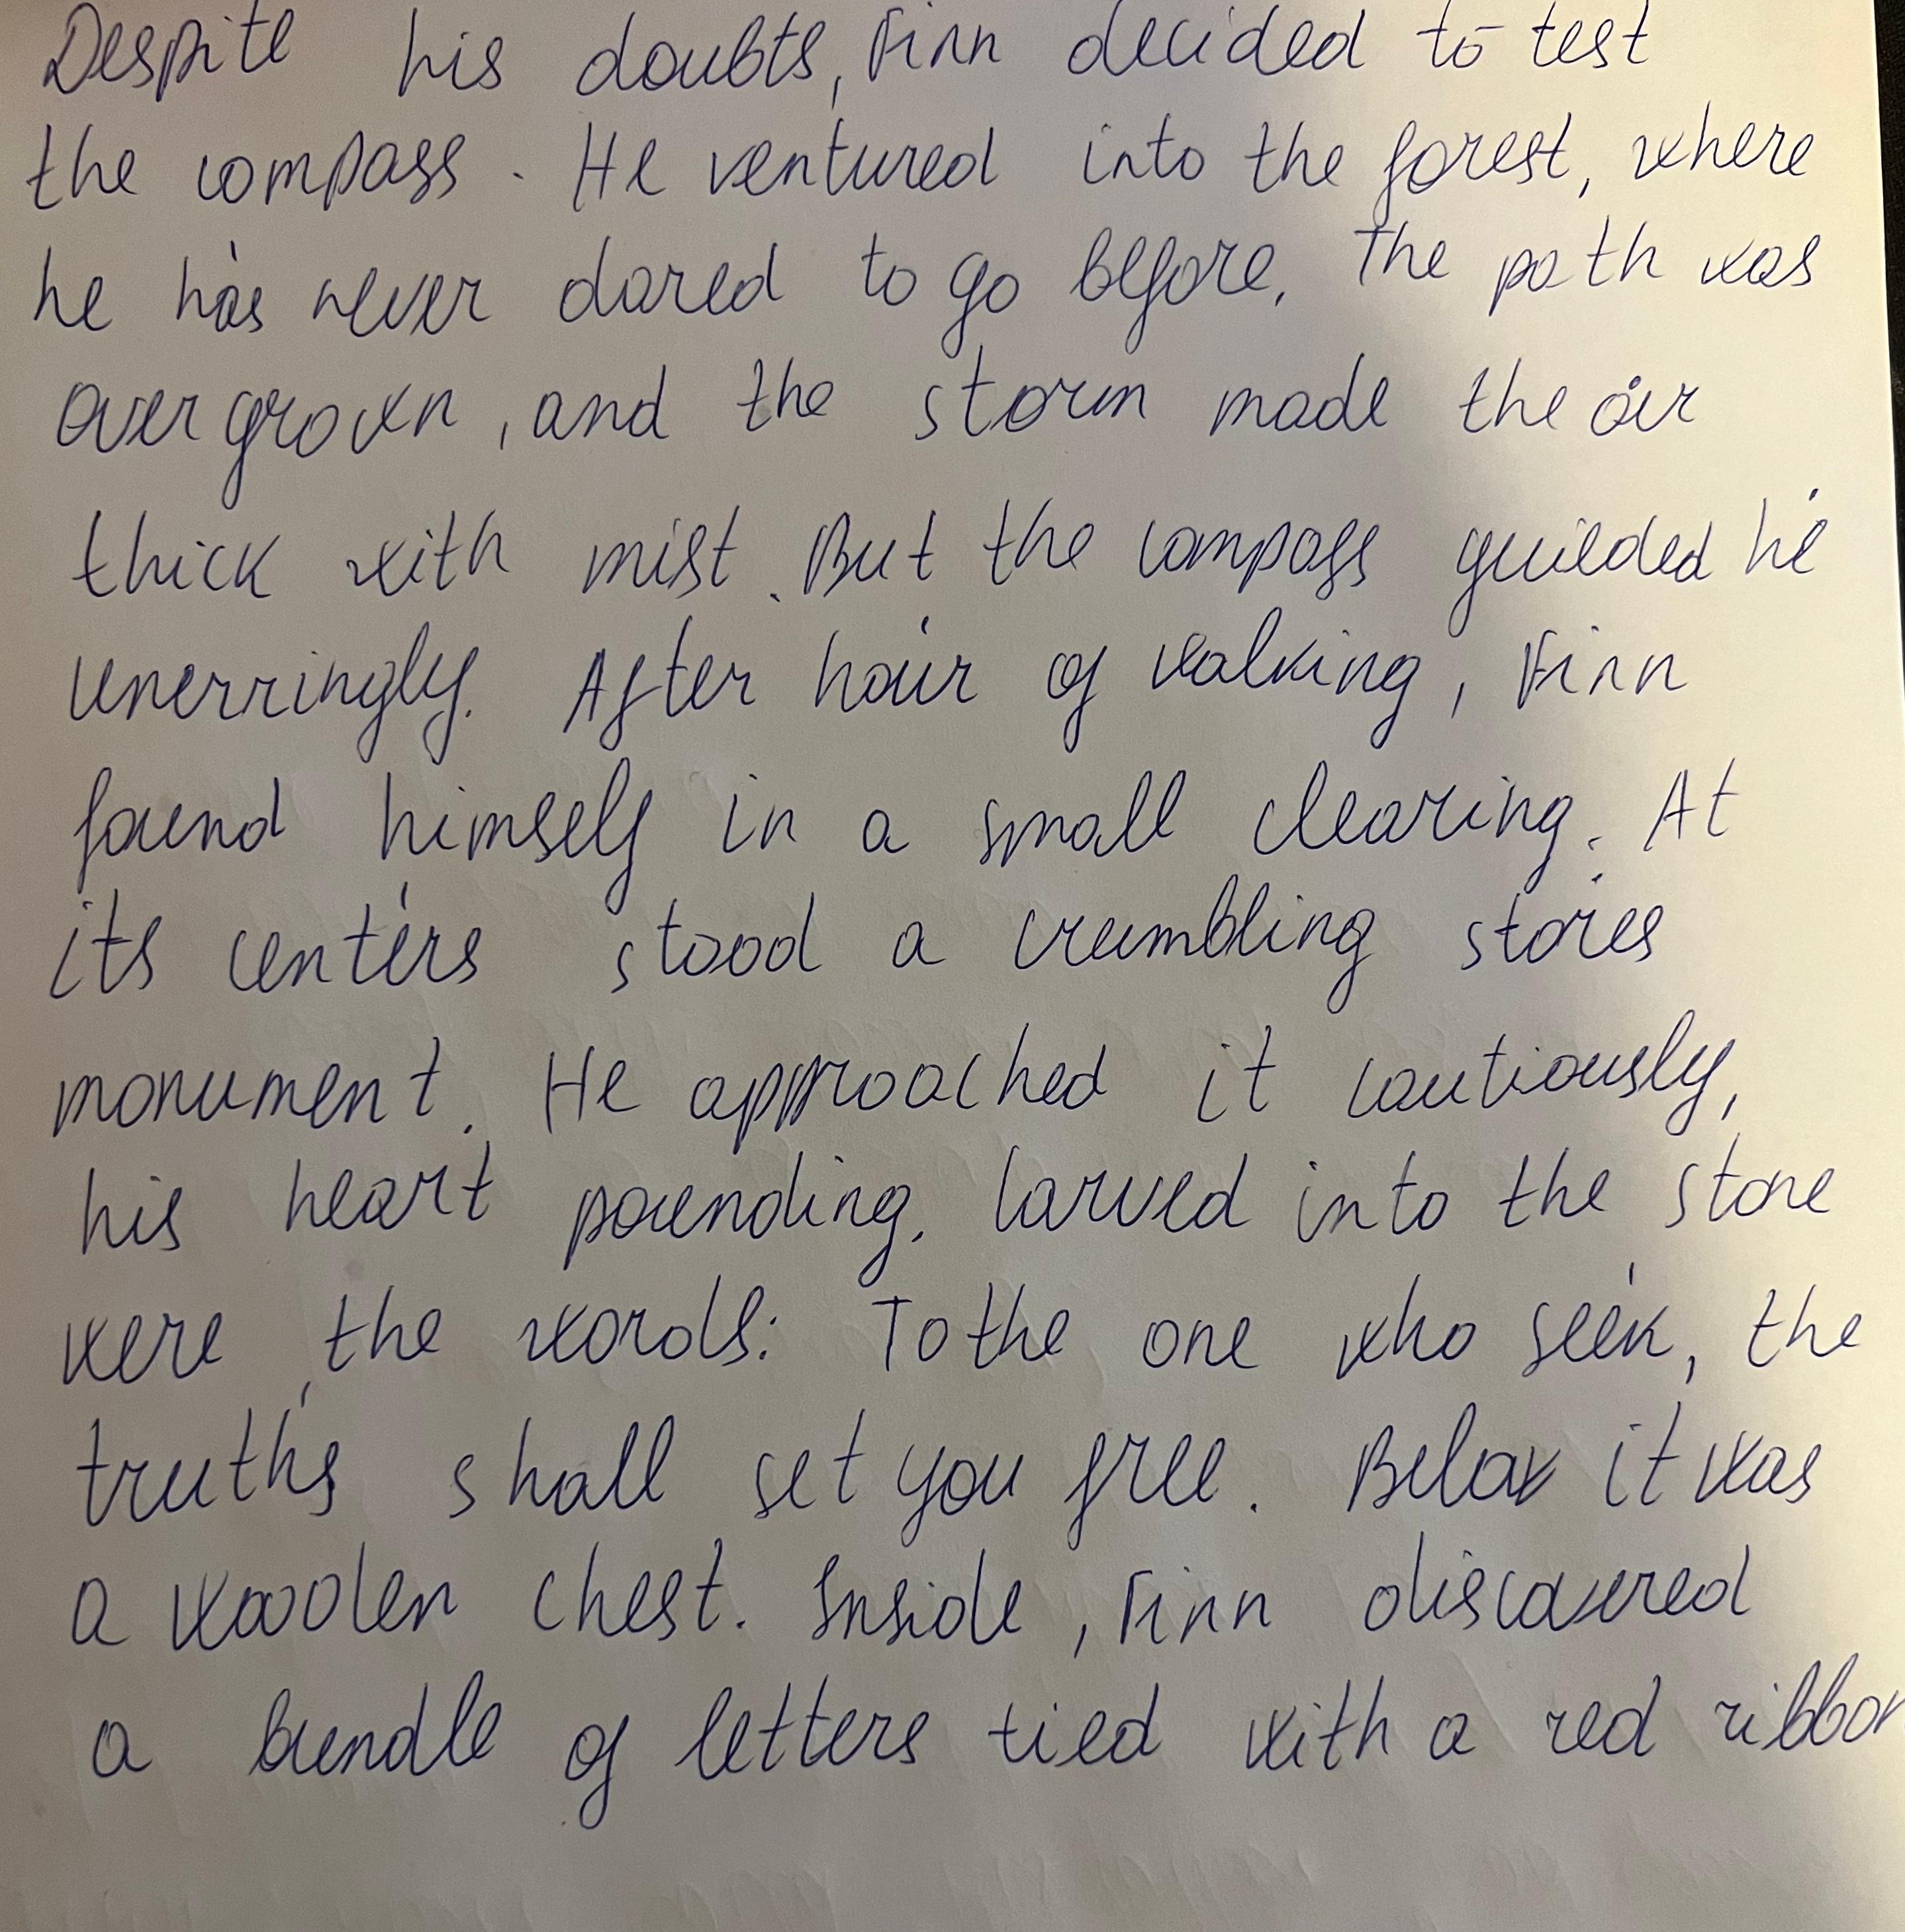 Despite his doubts, Finn decided to test
the compass. He ventured into the forest, where
he has never dared to go before. The path was
overgrown, and the storm made the air
thick with mist. But the compass guided he
unerringly. After hour of walking, Finn
found himself in a small clearing. At
its centers stood a crumbling stones
monument. He approached it cautiously,
his heart pounding. Carved into the stone
were the words: To the one who seek, the
truths shall set you free. Below it was
a wooden chest. Inside, Finn discovered
a bundle of letters tied with a red ribbon